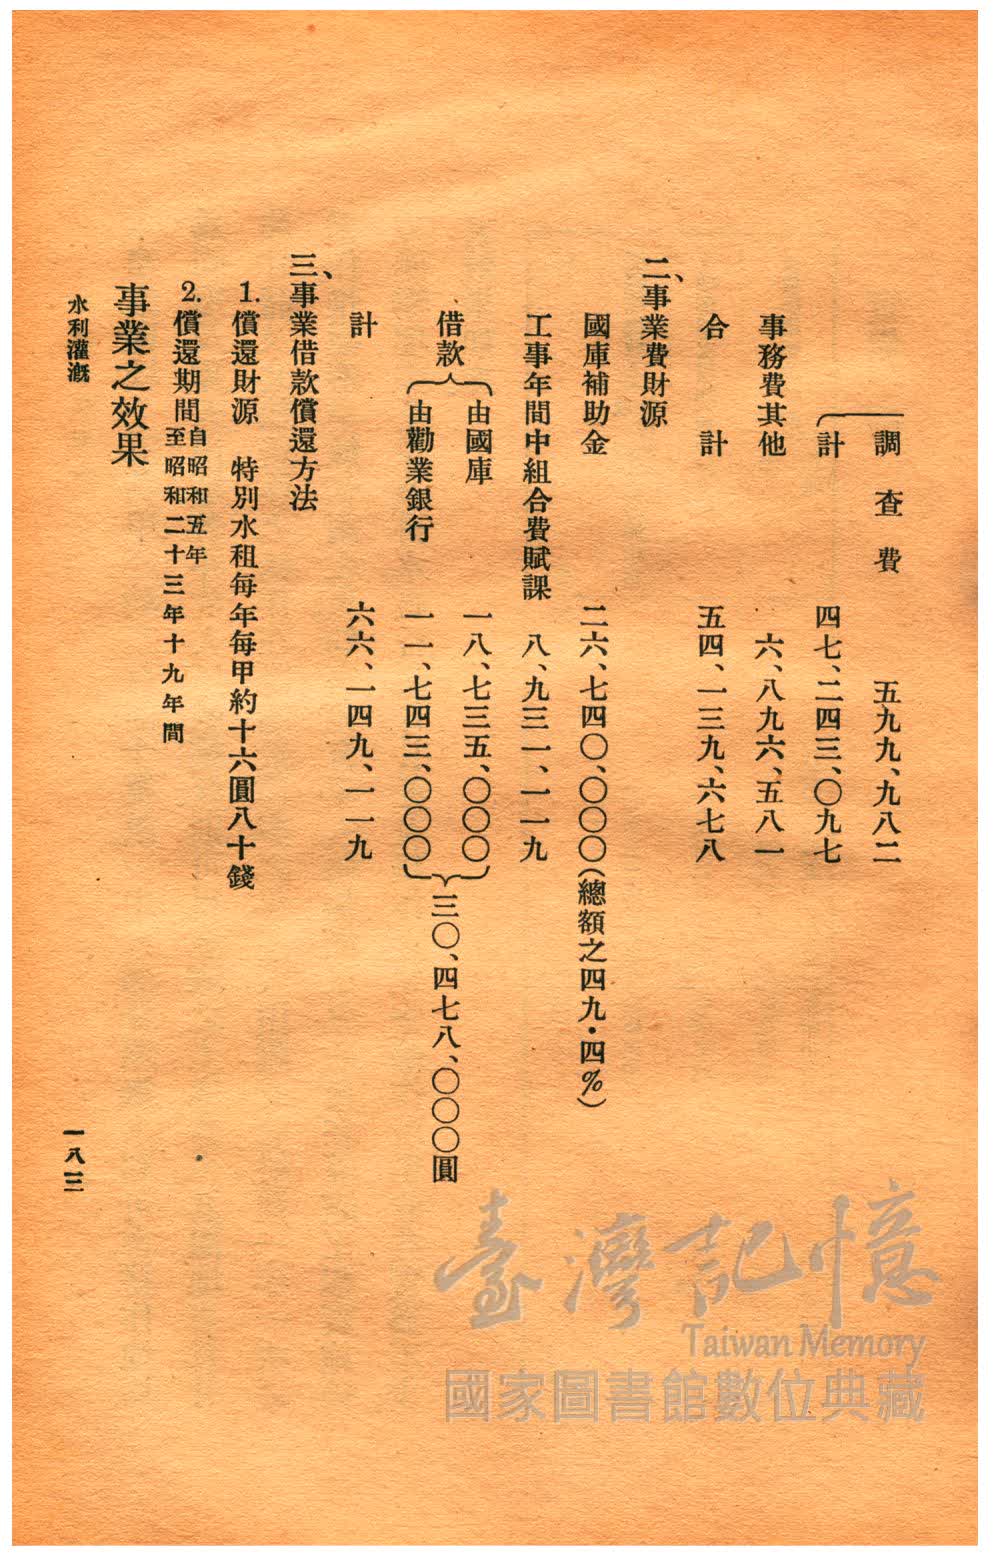 調查費　五九九、九八二
計　四七、二四三、〇九七
事務費其他　六、八九六、五八一
合計　五四、一三九、六七八
二、事業費財源
國庫補助金　二六、七四〇、〇〇〇(總額之四九・四%)
工事年間中組合費賦課　八、九三一、一一九
借款
由國庫　一八、七三五、〇〇〇
由勸業銀行　一一、七四三、〇〇〇
三〇、四七八、〇〇〇圓
計　六六、一四九、一一九
三、事業借款償還方法
1. 償還財源　特別水租每年每甲約十六圓八十錢
2. 償還期間 自昭和五年
至昭和二十三年十九年間
事業之效果
水利灌溉
一八三
臺灣記憶
Taiwan Memory
國家圖書館數位典藏